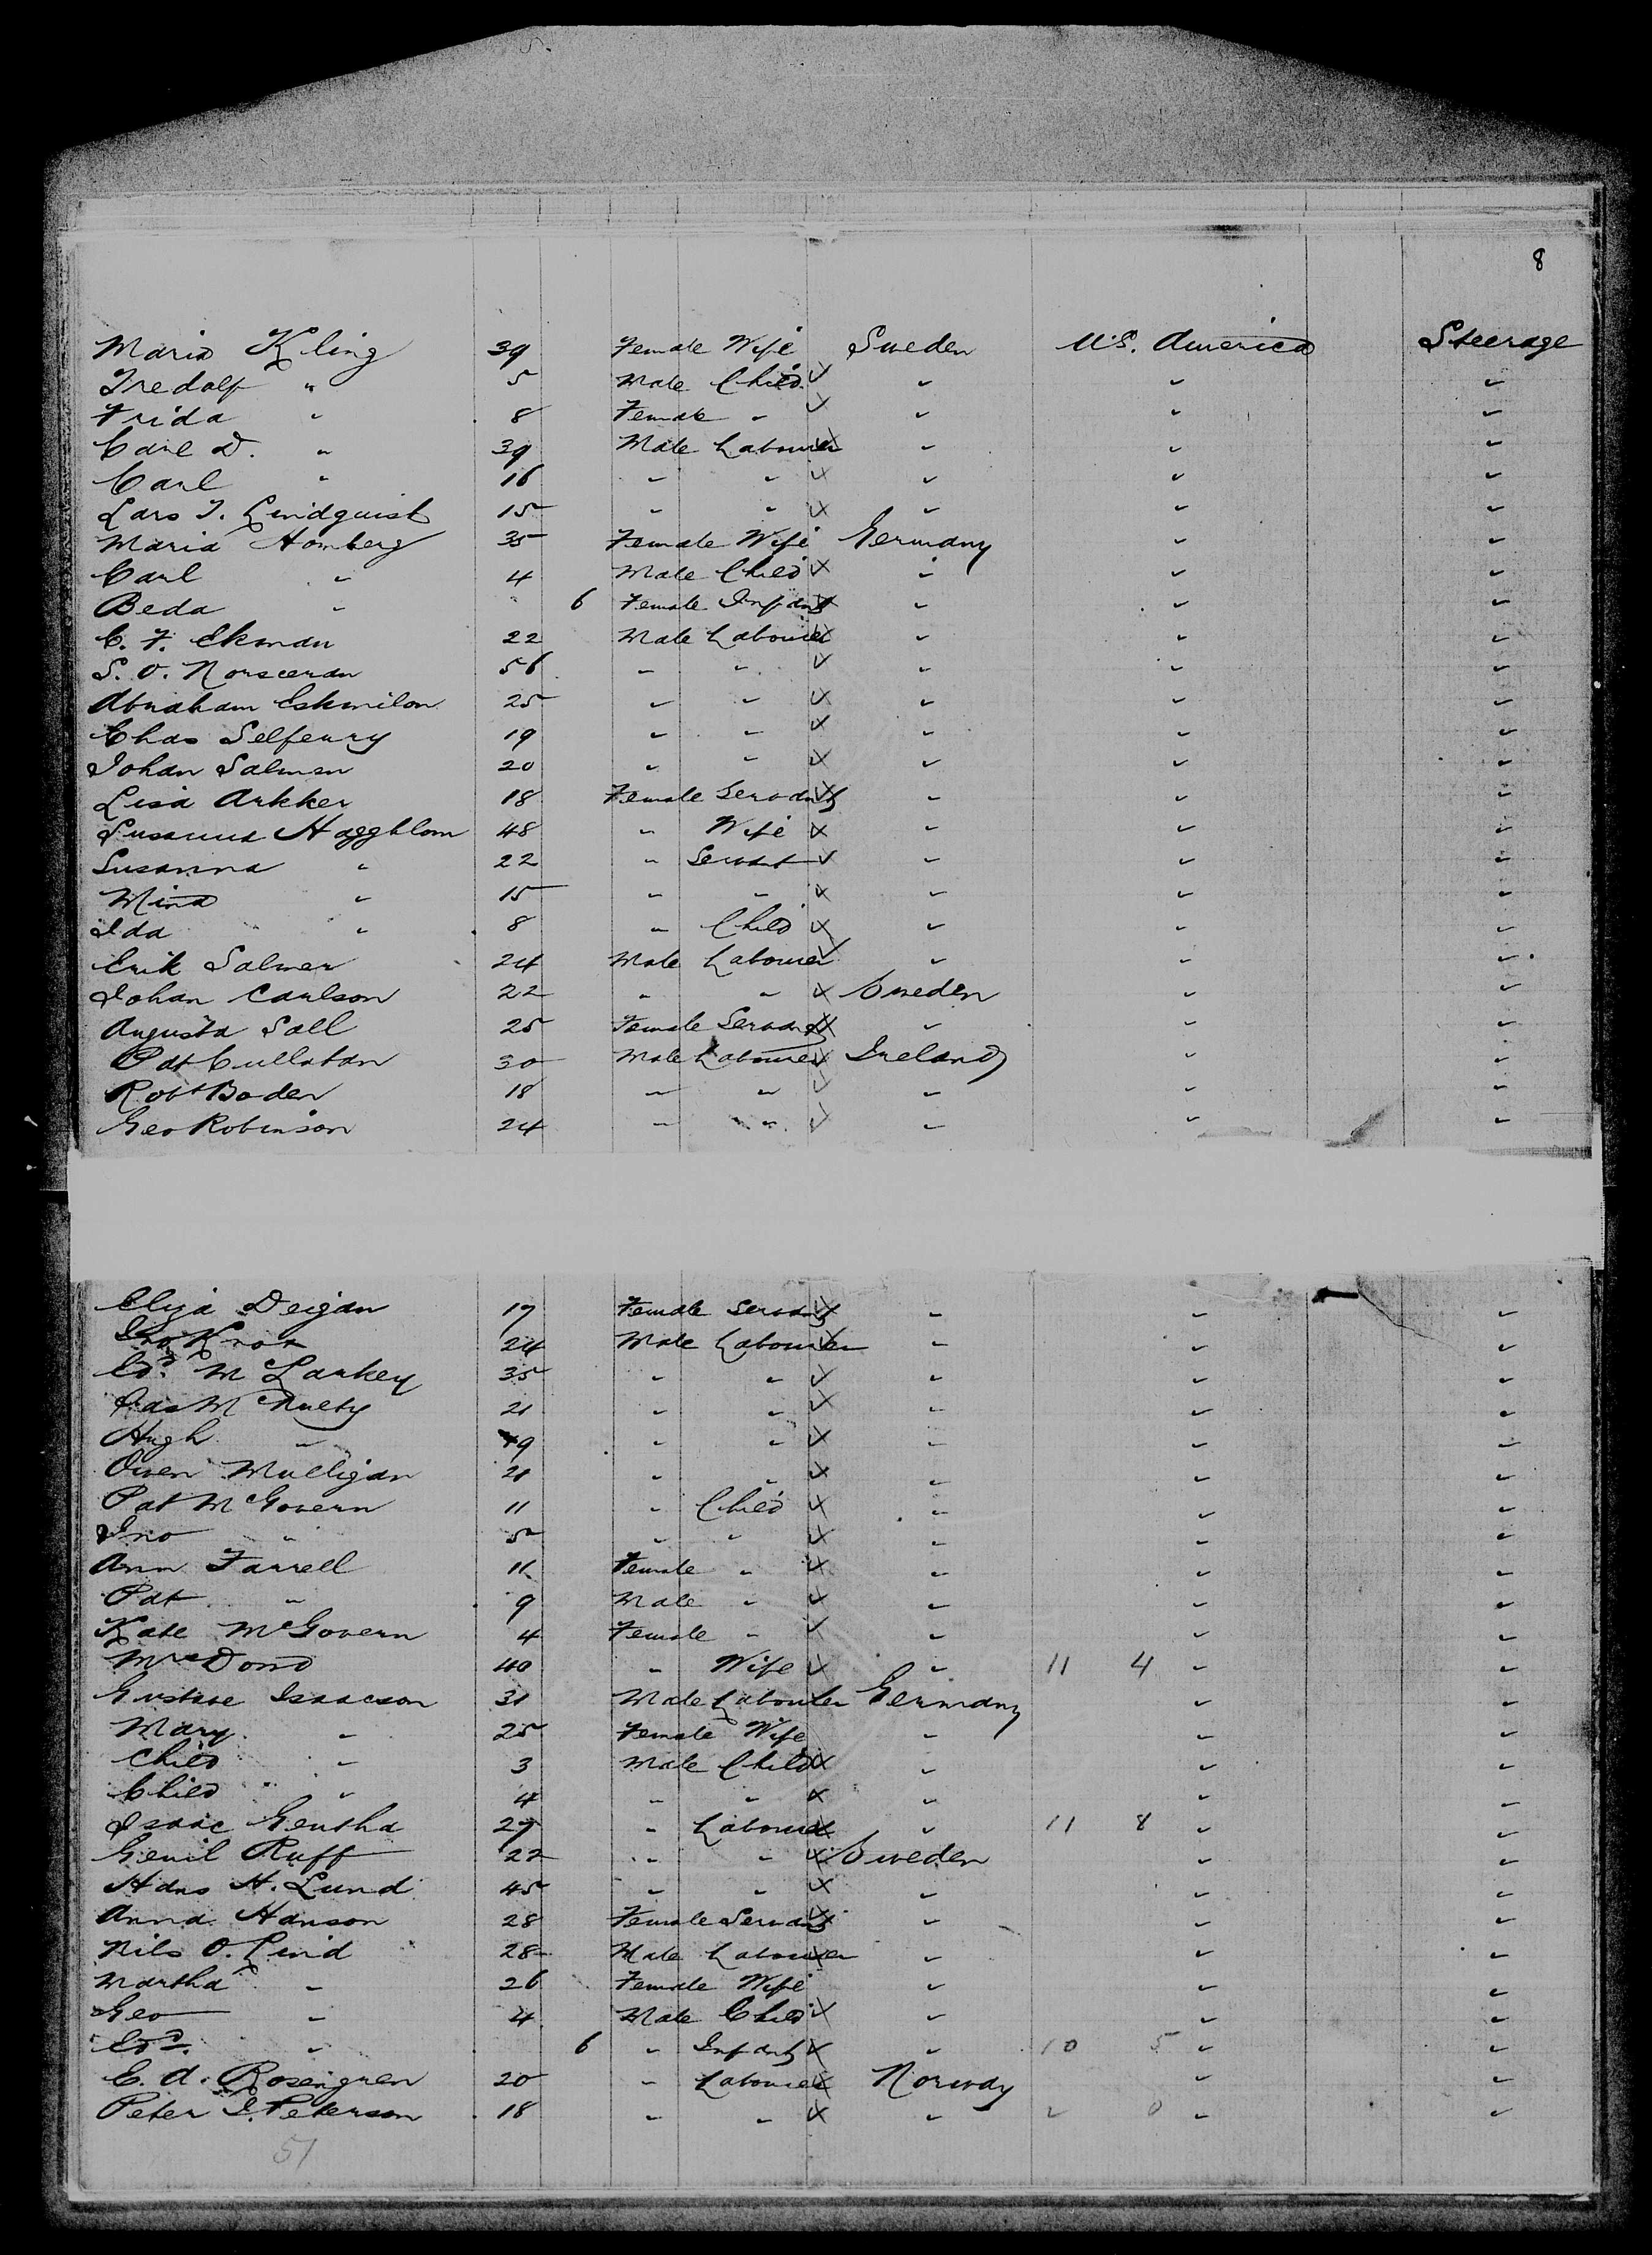 8
Maria Kling 39 Female Wife Sweden U.S. America Steerage
Fredolf " 5 Male Child " " "
Frida " 8 Female " " " "
Carl D. " 39 Male Labourer " " "
Carl " 16 " " " " "
Lars J. Lindquist 15 " " " " "
Maria Homberg 35 Female Wife Germany " "
Carl " 4 Male Child " " "
Beda " 6 Female Infant " " "
C. F. Ekman 22 Male Labourer " " "
S. O. 56 " " " " "
Abraham Eskmilon 25 " " " " "
Chas Selfeury 19 " " " " "
Johan Salmen 20 " " " " "
Lisa Arkker 18 Female Servant " " "
Susanna Haggblom 48 " Wife " " "
Susanna " 22 " Servant " " "
Mina " 15 " " " " "
Ida " 8 " Child " " "
Erik Salmer 24 Male Labourer " " "
Johan Carlson 22 " " Sweden " "
Augusta Sall 25 Female Servant " " "
Pat Cullatan 30 Male Labourer Ireland " "
Robt Boden 18 " " " " "
Geo Robinson 24 " " " " "
Eliza Deigan 17 Female Servant " " "
Jno Knox 24 Male Labourer " " "
Ed. Mc Larkey 35 " " " " "
Jas McNulty 21 " " " " "
Hugh " 19 " " " " "
Owen Mulligan 21 " " " " "
Pat McGovern 11 " Child " " "
Jno " 5 " " " " "
Ann Farrell 11 Female " " " "
Pat " 9 Male " " " "
Kate McGovern 4 Female " " " "
Mrs Dond 40 " Wife " 11 4 " "
Gustave Isaacson 31 Male Labourer Germany " "
Mary " 25 Female Wife " " "
Child " 3 Male Child " " "
Child " 4 " " " " "
Isaac Gentha 27 " Labourer " 11 8 " "
Genil Ruff 22 " " Sweden " "
Hans H. Lund 45 " " " " "
Anna Hanson 28 Female Servant " " "
Nils O. Lind 28 Male Labourer " " "
Martha " 26 Female Wife " " "
Geo " 4 Male Child " " "
Ed. " 6 " Infant " 10 5 " "
C. A. Rosengren 20 " Labourer Norway " "
Peter I. Peterson 18 " " " 2 0 " "
51